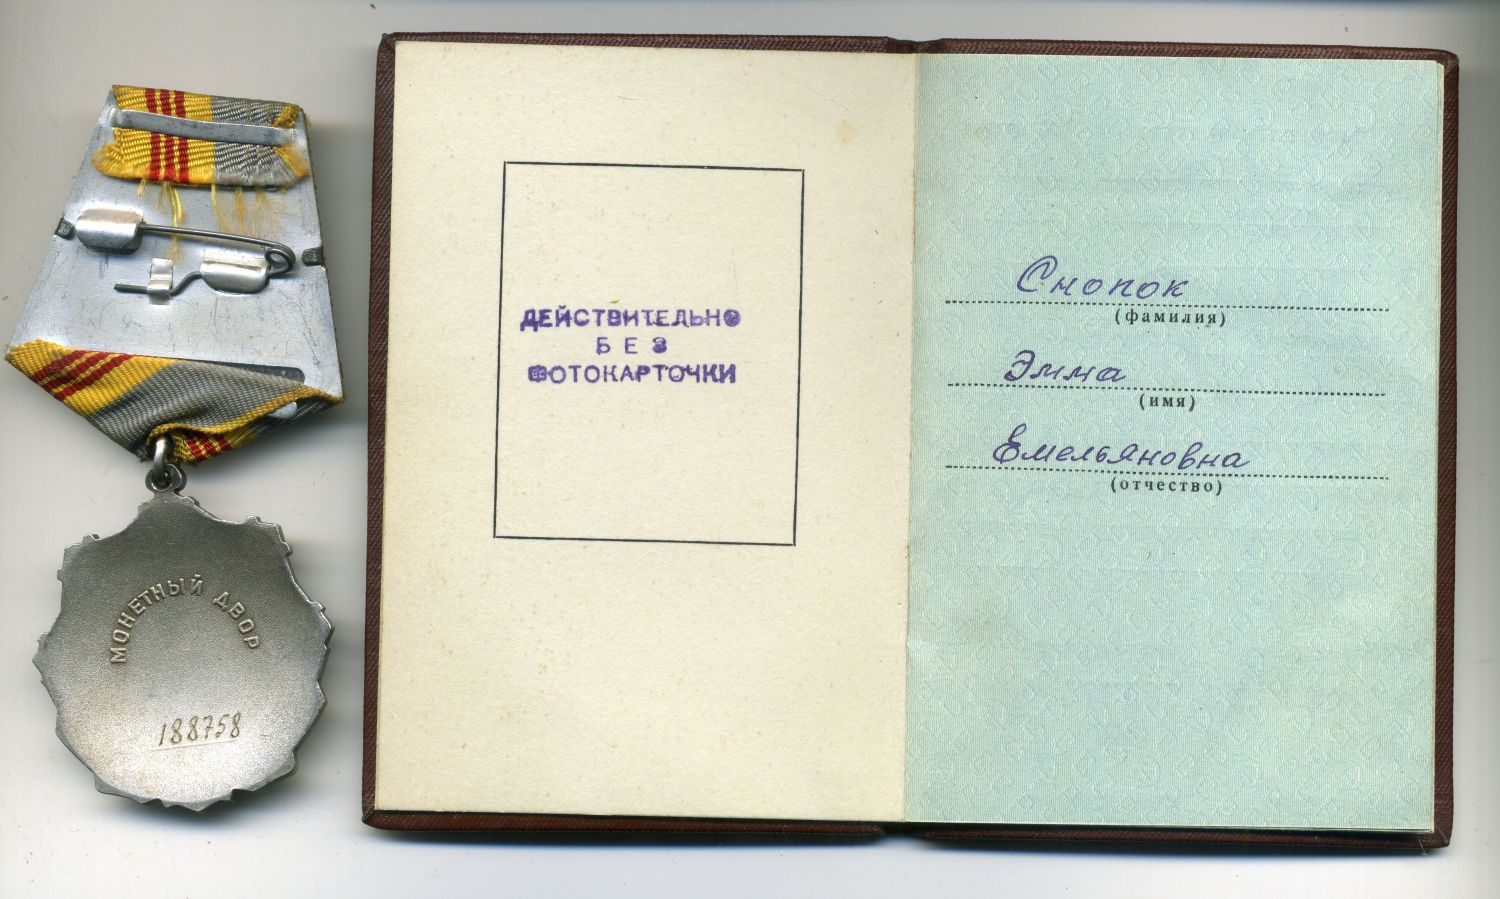 МОНЕТНЫЙ ДВОР
188758
ДЕЙСТВИТЕЛЬНО
БЕЗ
ФОТОКАРТОЧКИ
Снопок
(фамилия)
Эмма
(имя)
Емельяновна
(отчество)